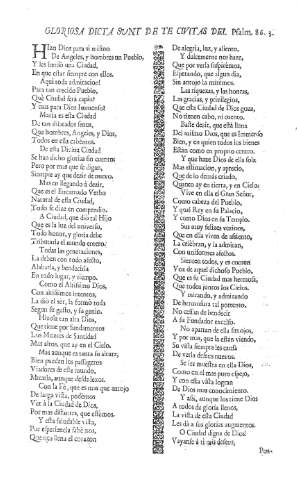 GLORIOSA DICTA SUNT DE TE CIVITAS DEI. Psalm. 86. 3.
HIzo Dios para si mismo
De Angeles, y hombres un Pueblo,
Y les fundò una Ciudad,
En que estàr siempre con ellos.
Aqui toda admiracion!
Para tan crecido Pueblo,
Què Ciudad serà capàz?
Y mas para Dios inmenso?
Maria es esta Ciudad
De tan dilatados senos,
Que hombres, Angeles, y Dios,
Todos en ella cabemos.
De esta Divina Ciudad
Se han dicho glorias sin cuento
Pero por mas que se digan,
Siempre ay que decir de nuevo.
Mas en llegando à decir,
Que es el Encarnado Verbo
Natural de esta Ciudad,
Todo se dize en compendio.
A Ciudad, que diò tal Hijo
Que es la luz del universo,
Todo honor, y gloria debe
Tributarla el mundo entero.
Todas las generaciones,
La deben con todo afecto,
Alabarla, y bendecirla
En todo lugar, y tiempo.
Como el Altissimo Dios,
Con altissimos intentos,
La diò el sèr, la formò toda
Segun su gusto, y su genio.
Hizola tan alta Dios,
Que tiene por fundamentos
Los Montes de Santidad
Mas altos, que ay en el Cielo.
Mas aunque es tanta su altura,
Bien pueden los passageros
Viadores de este mundo,
Mirarla, aunque desde lexos.
Con la Fè, que es mas que antojo
De larga vista, podemos
Vèr à la Ciudad de Dios,
Por mas distantes, que estèmos.
Y esta saludable vista,
Por experiencia sabemos,
Que nos llena el corazon
De alegria, luz, y aliento.
Y dulcemente nos hace,
Que por verla suspiremos,
Esperando, que algun dia,
Sin antojo la mirèmos.
Las riquezas, y las honras,
Las gracias, y privilegios,
Que esta Ciudad de Dios goza,
No tienen cabo, ni cuento.
Baste decir, que està llena
Del mismo Dios, que es Immenso
Bien, y en quien todos los bienes
Estàn como en proprio centro.
Y que hace Dios de ella sola
Mas estimacion, y aprecio,
Que de lo demàs criado,
Quanto ay en tierra, y en Cielo.
Vive en ella el Gran Señor,
Como cabeza del Pueblo,
Y qual Rey en su Palacio,
Y como Dios en su Templo.
Sus muy felizes vecinos,
Que en ella viven de assiento,
La celebran, y la admiran,
Con uniformes afectos.
Sienten todos, y es comun
Voz de aquel dichoso Pueblo,
Que es su Ciudad mas hermosa,
Que todos juntos los Cielos.
Y mirando, y admirando
De hermosura tal portento,
No cessan de bendecir
A su Fundador excelso.
No apartan de ella sus ojos,
Y por mas, que la estàn viendo,
Su vista siempre les causa
De verla deseos nuevos.
Se vèn metidos en ella Dios,
Como en el mas puro espejo,
Y con esta vista logran
De Dios mas conocimiento.
Y assi, aunque los tiene Dios
A todos de gloria llenos,
La vista de tal Ciudad
Les dà à sus glorias augmentos.
O Ciudad digna de Dios!
Vayanse à ti mis deseos,
Pon-